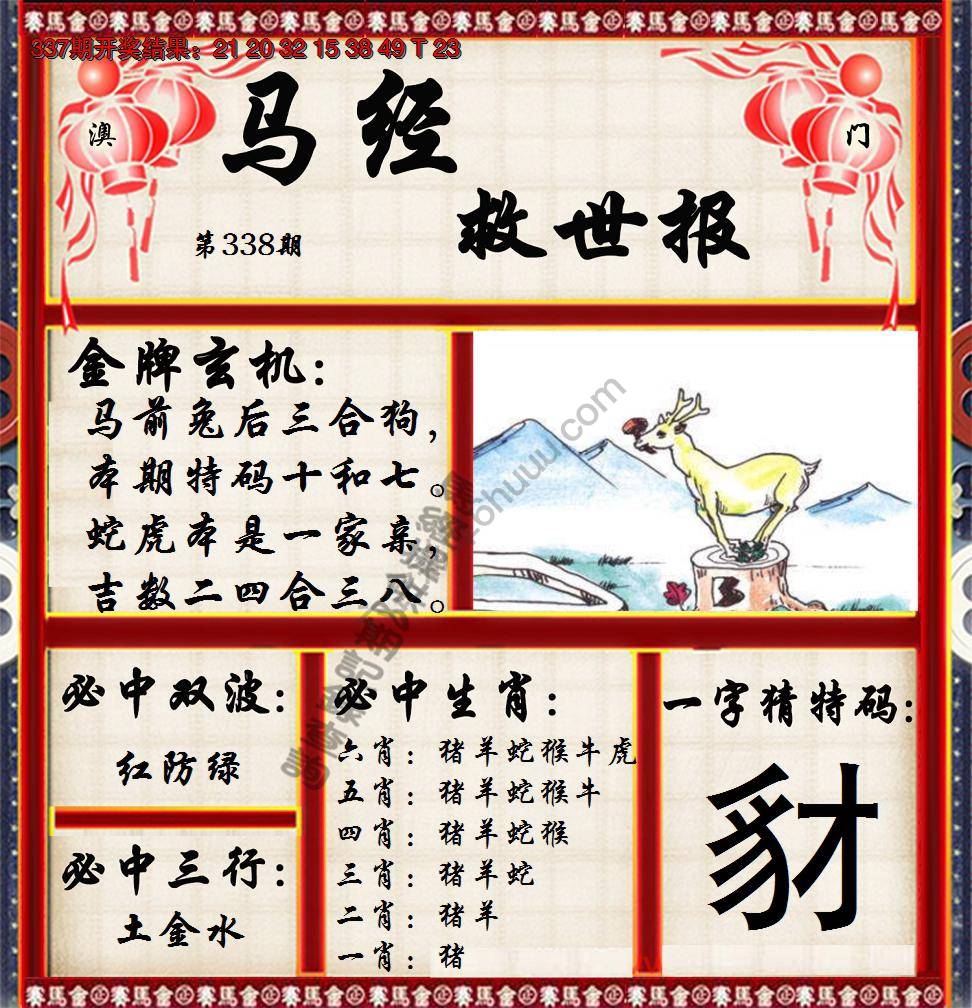 337期开奖结果：21 20 32 15 38 49 T 23
澳
门
马经
救世报
第338期
金牌玄机：
马前兔后三合狗，
本期特码十和七。
蛇虎本是一家亲，
吉数二四合三八。
必中双波：
红防绿
必中三行：
土金水
必中生肖：
六肖：猪羊蛇猴牛虎
五肖：猪羊蛇猴牛
四肖：猪羊蛇猴
三肖：猪羊蛇
二肖：猪羊
一肖：猪
一字猜特码：
豺